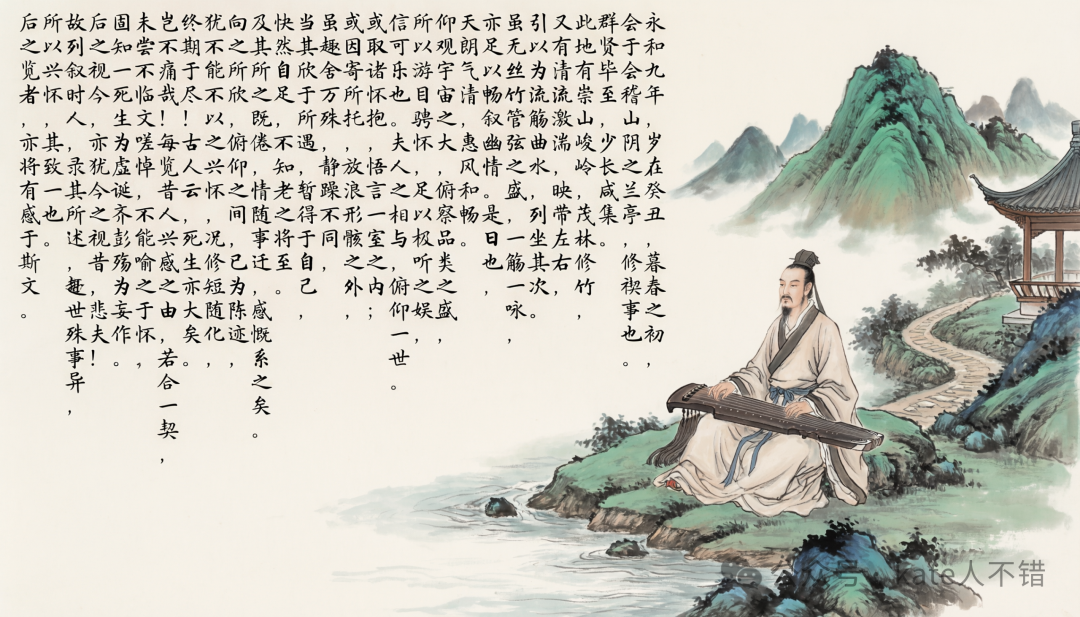 永和九年,岁在癸丑,暮春之初,
会于会稽山,阴之兰亭,修禊事也。
群贤毕至,少长咸集。
此地有崇山,峻岭,茂林修竹,
又有清流激湍,映带左右,
引以为流筋曲水,列坐其次。
虽无丝竹管弦之盛,一筋一咏,
亦足以畅叙幽情。是日也,
天朗气清,惠风和畅。
仰观宇宙之大,俯察品类之盛,
所以游目骋怀,足以极听之娱,
信可乐也。夫人之相与,俯仰一世。
或取诸怀抱。悟言一室之内;
或因寄所托,放浪形骸之外,
虽趣舍万殊,静躁不同,
当其欣于所遇,暂得于自己,
快然自足,不知老之将至。
及其所之既,倦情随事迁,感慨系之矣。
向之所欣,俯仰之间,已为陈迹,
犹不能不以,之兴怀,况修短随化,
终期于尽!古人云,死生亦大矣。
岂不痛哉!每览昔人,兴感之由,若合一契,
未尝不临文!嗟悼,不能喻之于怀,
固知一死生为虚诞,齐彭殇为妄作。
后之视今,亦犹今之视昔,悲夫!
故列叙时人,录其所述,趣世殊事异,
所以兴怀,其致一也。
后之览者,亦将有感于斯文。
号 kate人不错